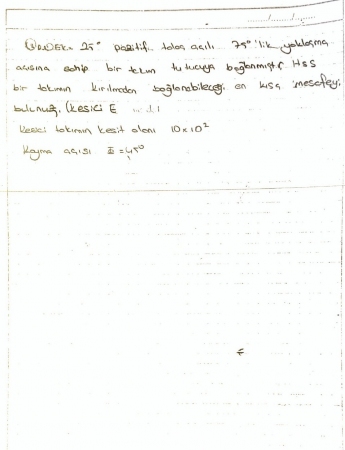 ÖRNEK: 25° pozitif talaş açılı 75°'lik yaklaşma
açısına sahip bir takım tutucuya bağlanmıştır HSS
bir takımın kırılmadan bağlanabileceği en kısa mesafeyi
bulunuz. (kesici E
Kesici takımın kesit alanı 10x10²
Kayma açısı = 45°